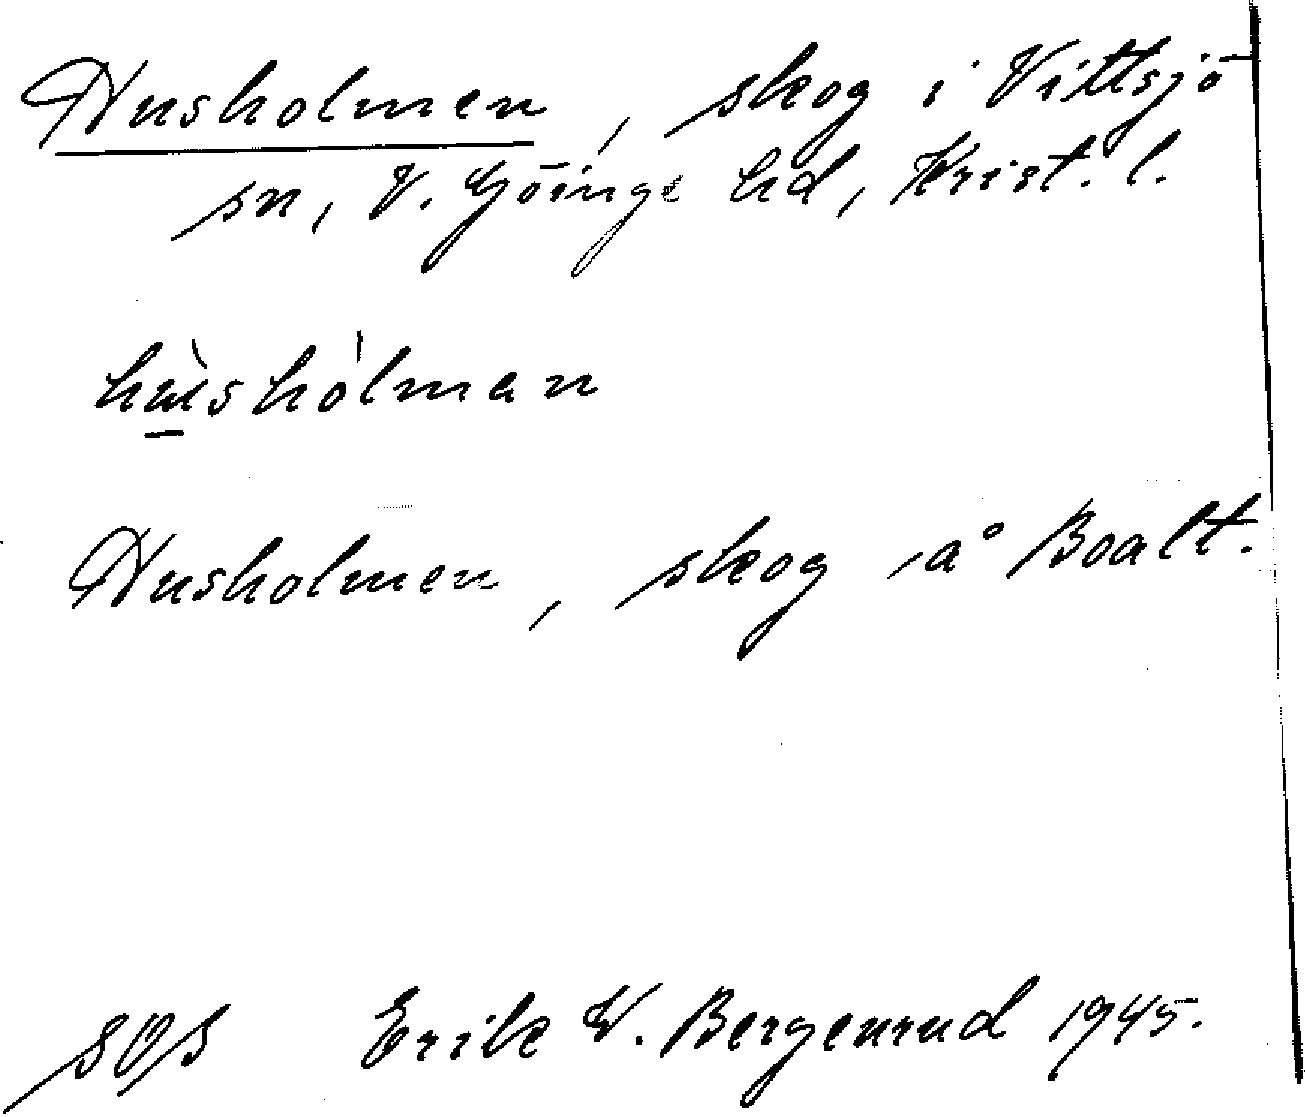 Husholmen, skog i Vittsjö
sn, V. Göinge hd, Krist. l.
hùshólman
Husholmen, skog å Boalt.
SOS Erik W. Bergenrud 1945.